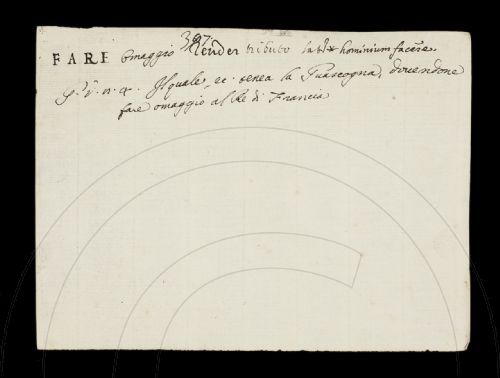 397.
FARE omaggio Render tributo lat. * hominium facere.
G. V. 11. 4. Il quale, ec. tenea la Guascogna, dovendone
fare omaggio al Re di Francia